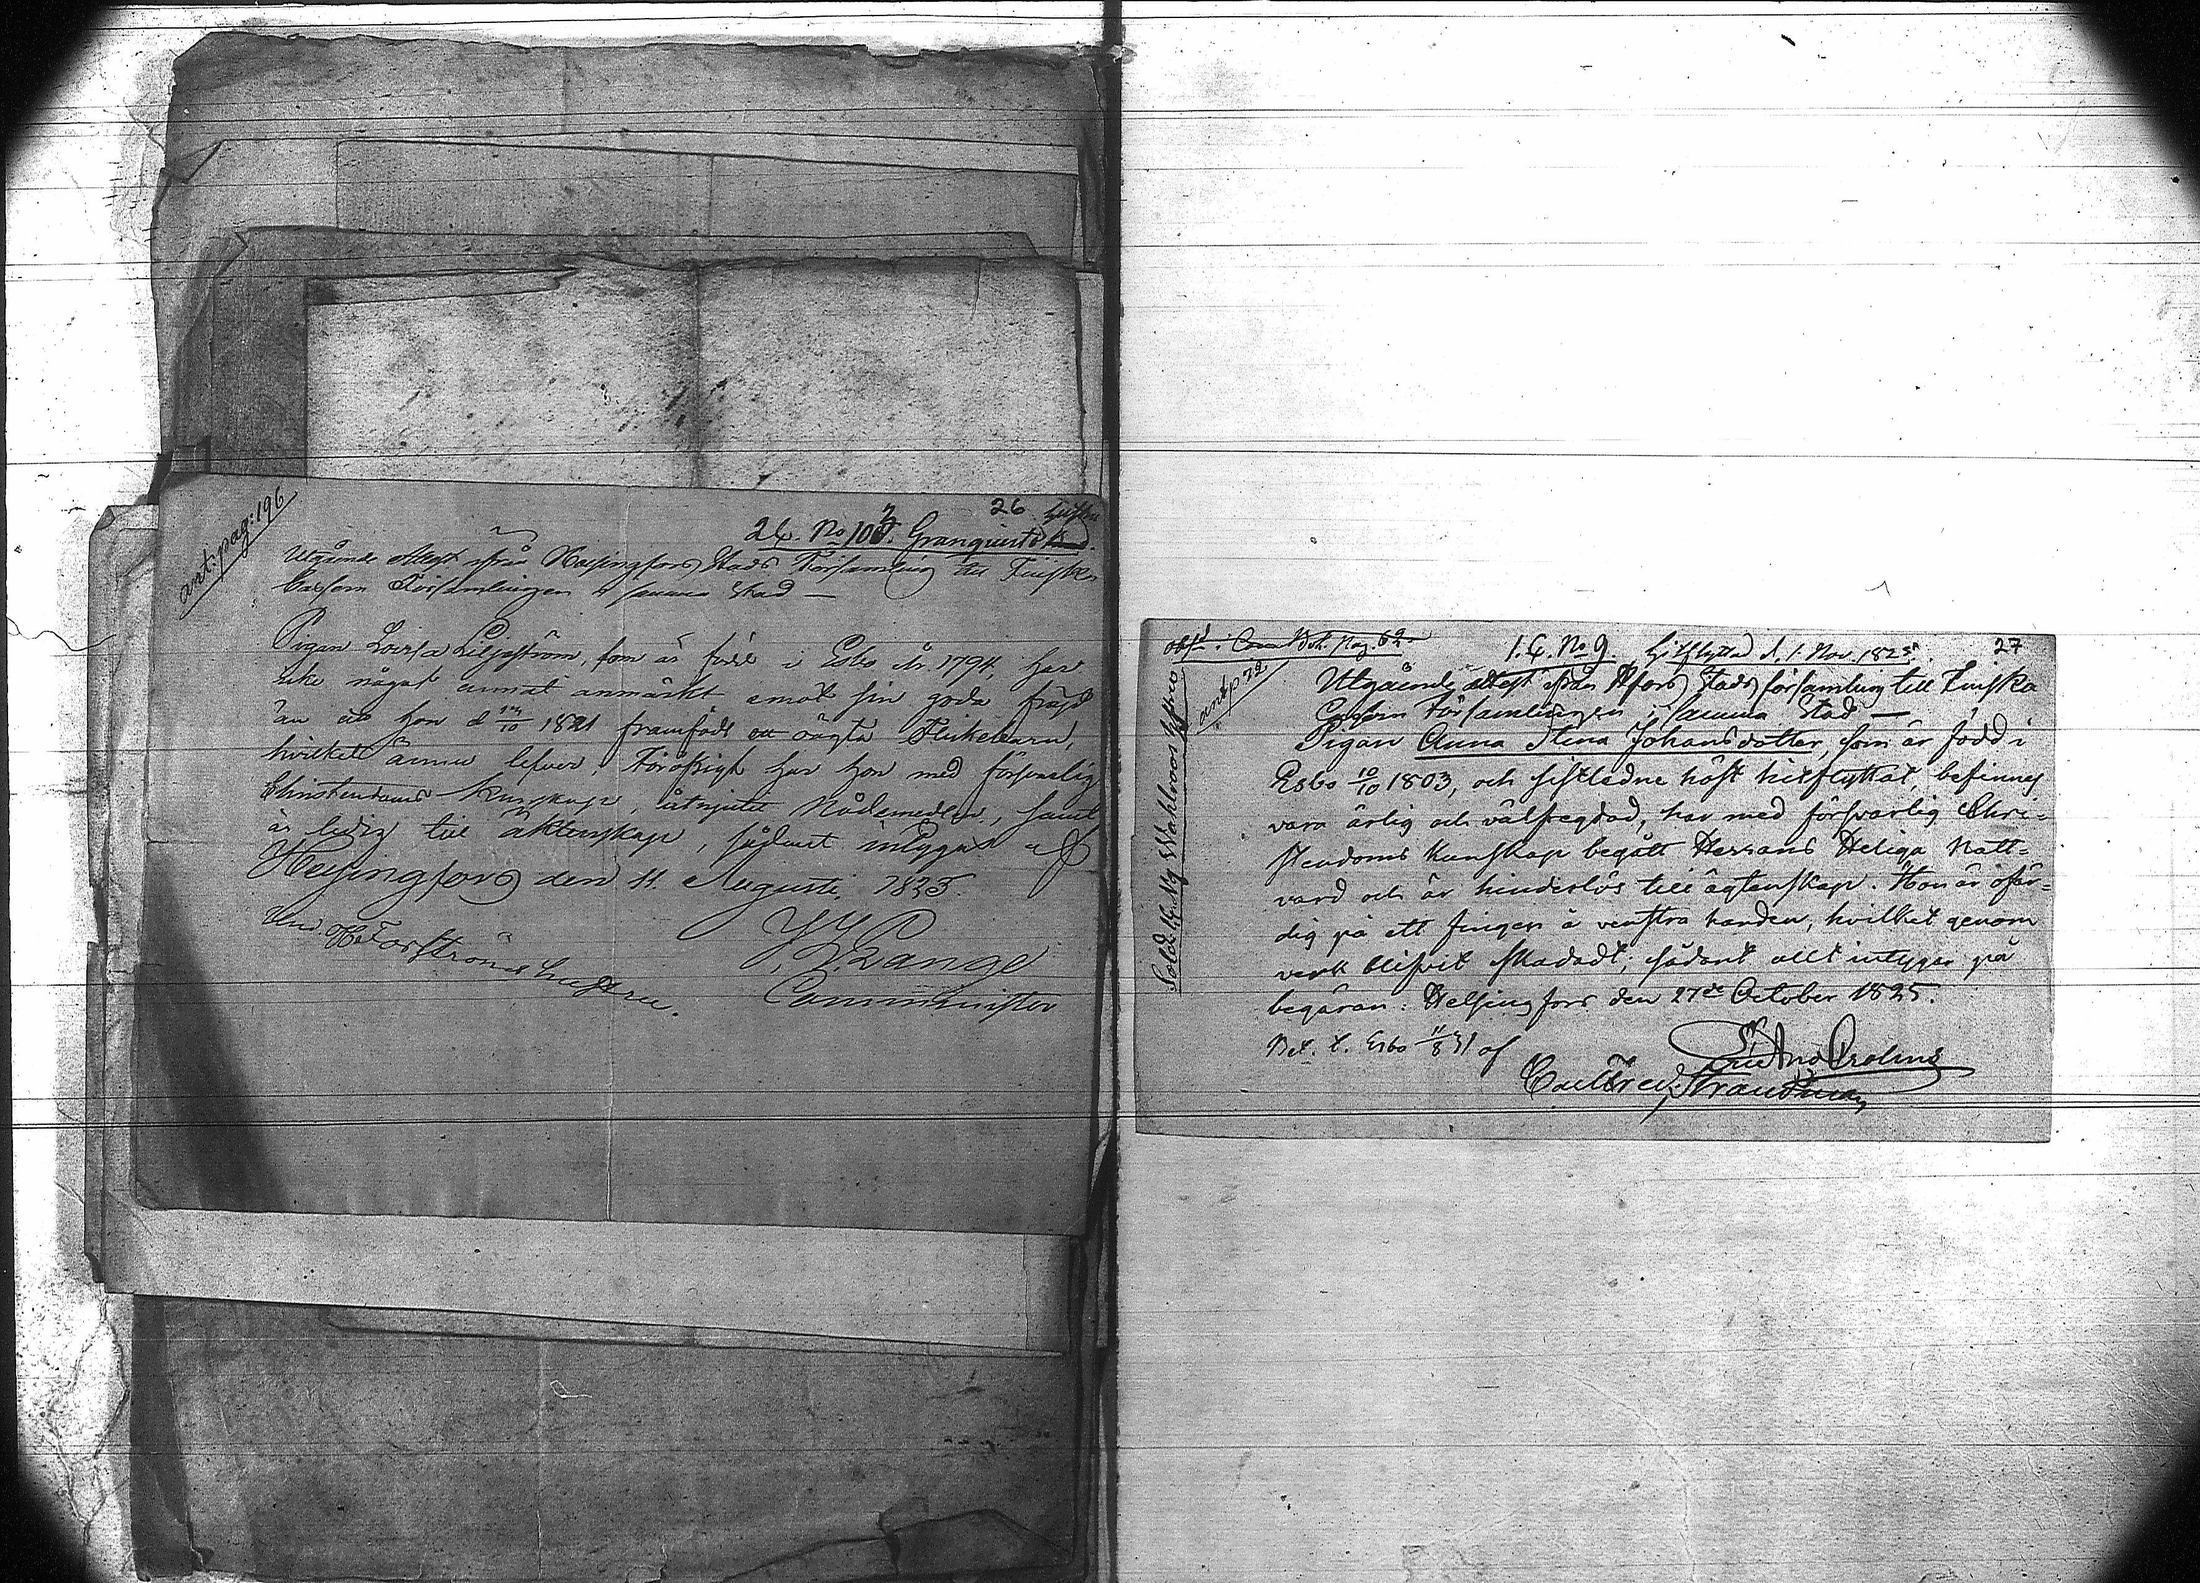 ant: pag: 196
26
2 Q. No 103. Granquists
Utgående Attest ifrån Helsingfors Stads Församling till Finska
Församlingen i samma Stad —
Pigan Lovisa Liljeström, som är född i Esbo År 1794, har
icke något annat anmärkt emot sin goda frägd
än att hon d 1821 framfödt ett oägta Flickebarn,
hvilket ännu lefver, Föröfrigt har hon med försvarlig
Christendoms kunskap, åtnjutit Nådemedlen, samt
är ledig till äktenskap, sådant intygas af
Helsingfors den 11. Augusti 1825.
Comminister
27
1. Q. No 9. Hitflyttad d. 1 Nov. 1825.
ant p 72
Utgående attest ifrån Hfors Stads församling till Finska
Församlingen i samma Stad —
Pigan Anna Stina Johansdotter, som är född i
Esbo 10/10 1803, och sistledne höst hitflyttat, befinnes
vara ärlig och välfregdad, har med försvarlig Chri-
stendoms kunskap begått Herrans Heliga Natt-
vard och är hinderslös till ägtenskap. Hon är ofär-
dig på ett finger å venstra handen, hvilket genom
verk blifvit skadadt; sådant allt intygar på
begäran. Helsingfors den 27de October 1825.
Bet. t. Esbo 11/8 31 af